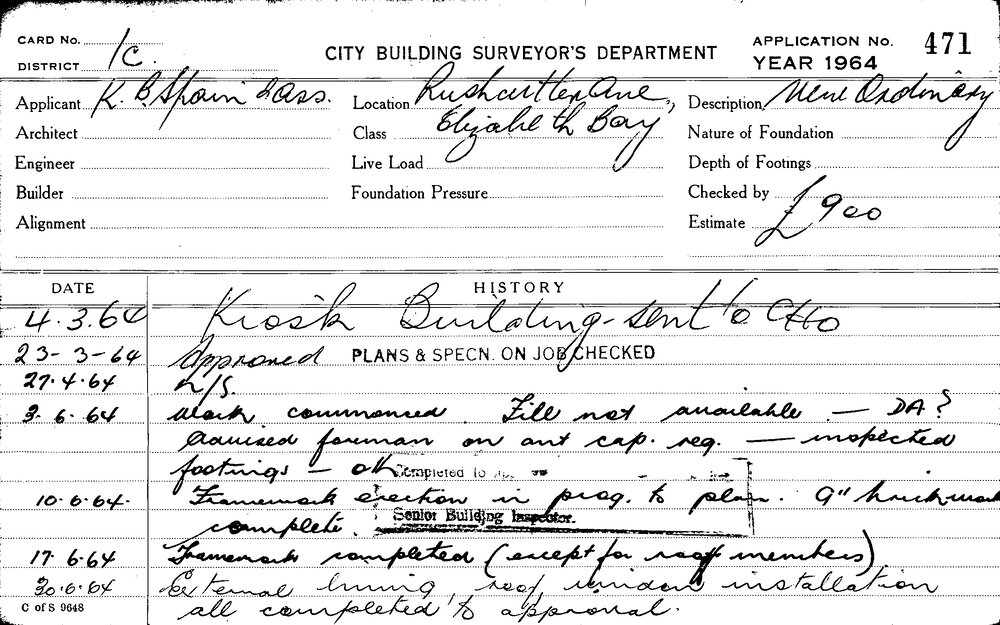 CARD No. 1c.
DISTRICT
CITY BUILDING SURVEYOR'S DEPARTMENT
APPLICATION No. 471
YEAR 1964
Applicant K. B. Spain & Ass.
Location Rushcutter Ave,
Description New Ordinary
Architect
Class Elizabeth Bay
Nature of Foundation
Engineer
Live Load
Depth of Footings
Builder
Foundation Pressure
Checked by
Alignment
Estimate £900
DATE HISTORY
4.3.64 Kiosk Building - sent to CHO
23-3-64 Approved PLANS & SPECN. ON JOB CHECKED
27.4.64 N/S.
3.6.64 Work commenced. File not available — DA?
Advised foreman on ant cap. req. — inspected
footings - ok
Completed to
10.6.64. Framework erection in prog. to plan. 9" brickwork
complete.
Senior Building Inspector.
17.6.64 Framework completed (except for roof members)
30.6.64 External lining, roof, window installation
all completed to approval.
C of S 9648